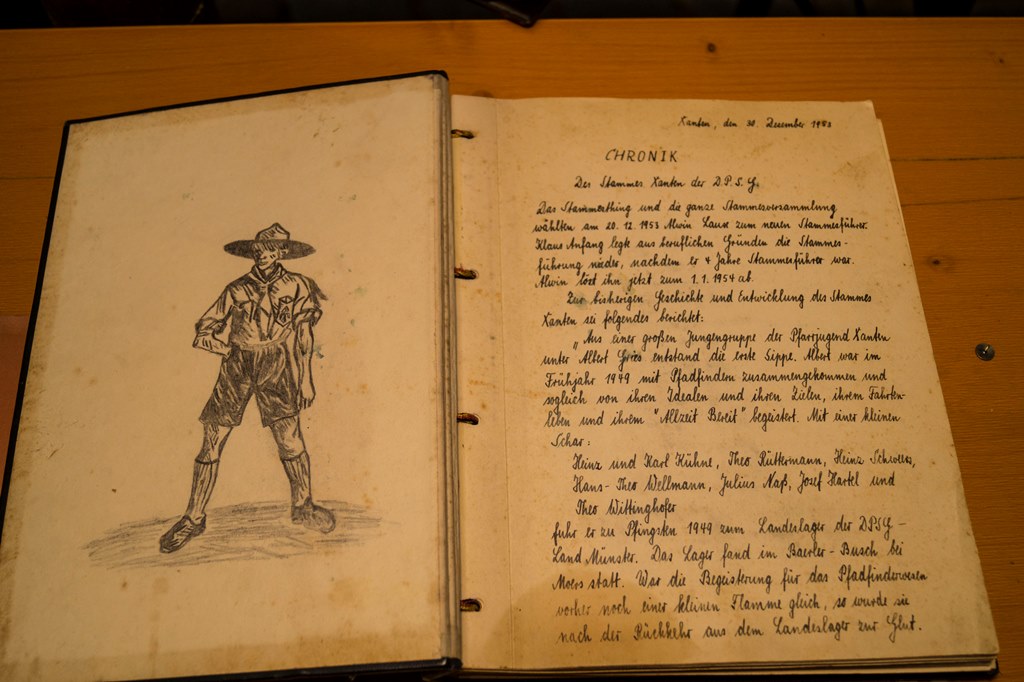 Xanten, den 30. Dezember 1953
CHRONIK
Des Stammes Xanten der D.P.S.G.
Das Stammesthing und die ganze Stammesversammlung
wählten am 20.12.1953 Alwin zum neuen Stammesführer.
Klaus Anfang legte aus beruflichen Gründen die Stammes-
führung nieder, nachdem er 4 Jahre Stammesführer war.
Alwin löst ihn jetzt zum 1.1.1954 ab.
Zur bisherigen Geschichte und Entwicklung des Stammes
Xanten sei folgendes berichtet:
„Aus einer großen Jungengruppe der Pfarrjugend Xanten
unter Albert entstand die erste Sippe. Albert war im
Frühjahr 1949 mit Pfadfindern zusammengekommen und
sogleich von ihren Idealen und ihren Zielen, ihrem Fahrten-
leben und ihrem "Allzeit Bereit" begeistert. Mit einer kleinen
Schar:
Heinz und Karl Kühne, Theo Rüttermann, Heinz
Hans-Theo Wellmann, Julius Naß, Josef Hartel und
Theo Wittinghofer
fuhr er zu Pfingsten 1949 zum Landeslager der DPSG -
Land Münster. Das Lager fand im Baerler-Busch bei
Moers statt. War die Begeisterung für das Pfadfinderwesen
vorher noch einer kleinen Flamme gleich, so wurde sie
nach der Rückkehr aus dem Landeslager zur Glut.